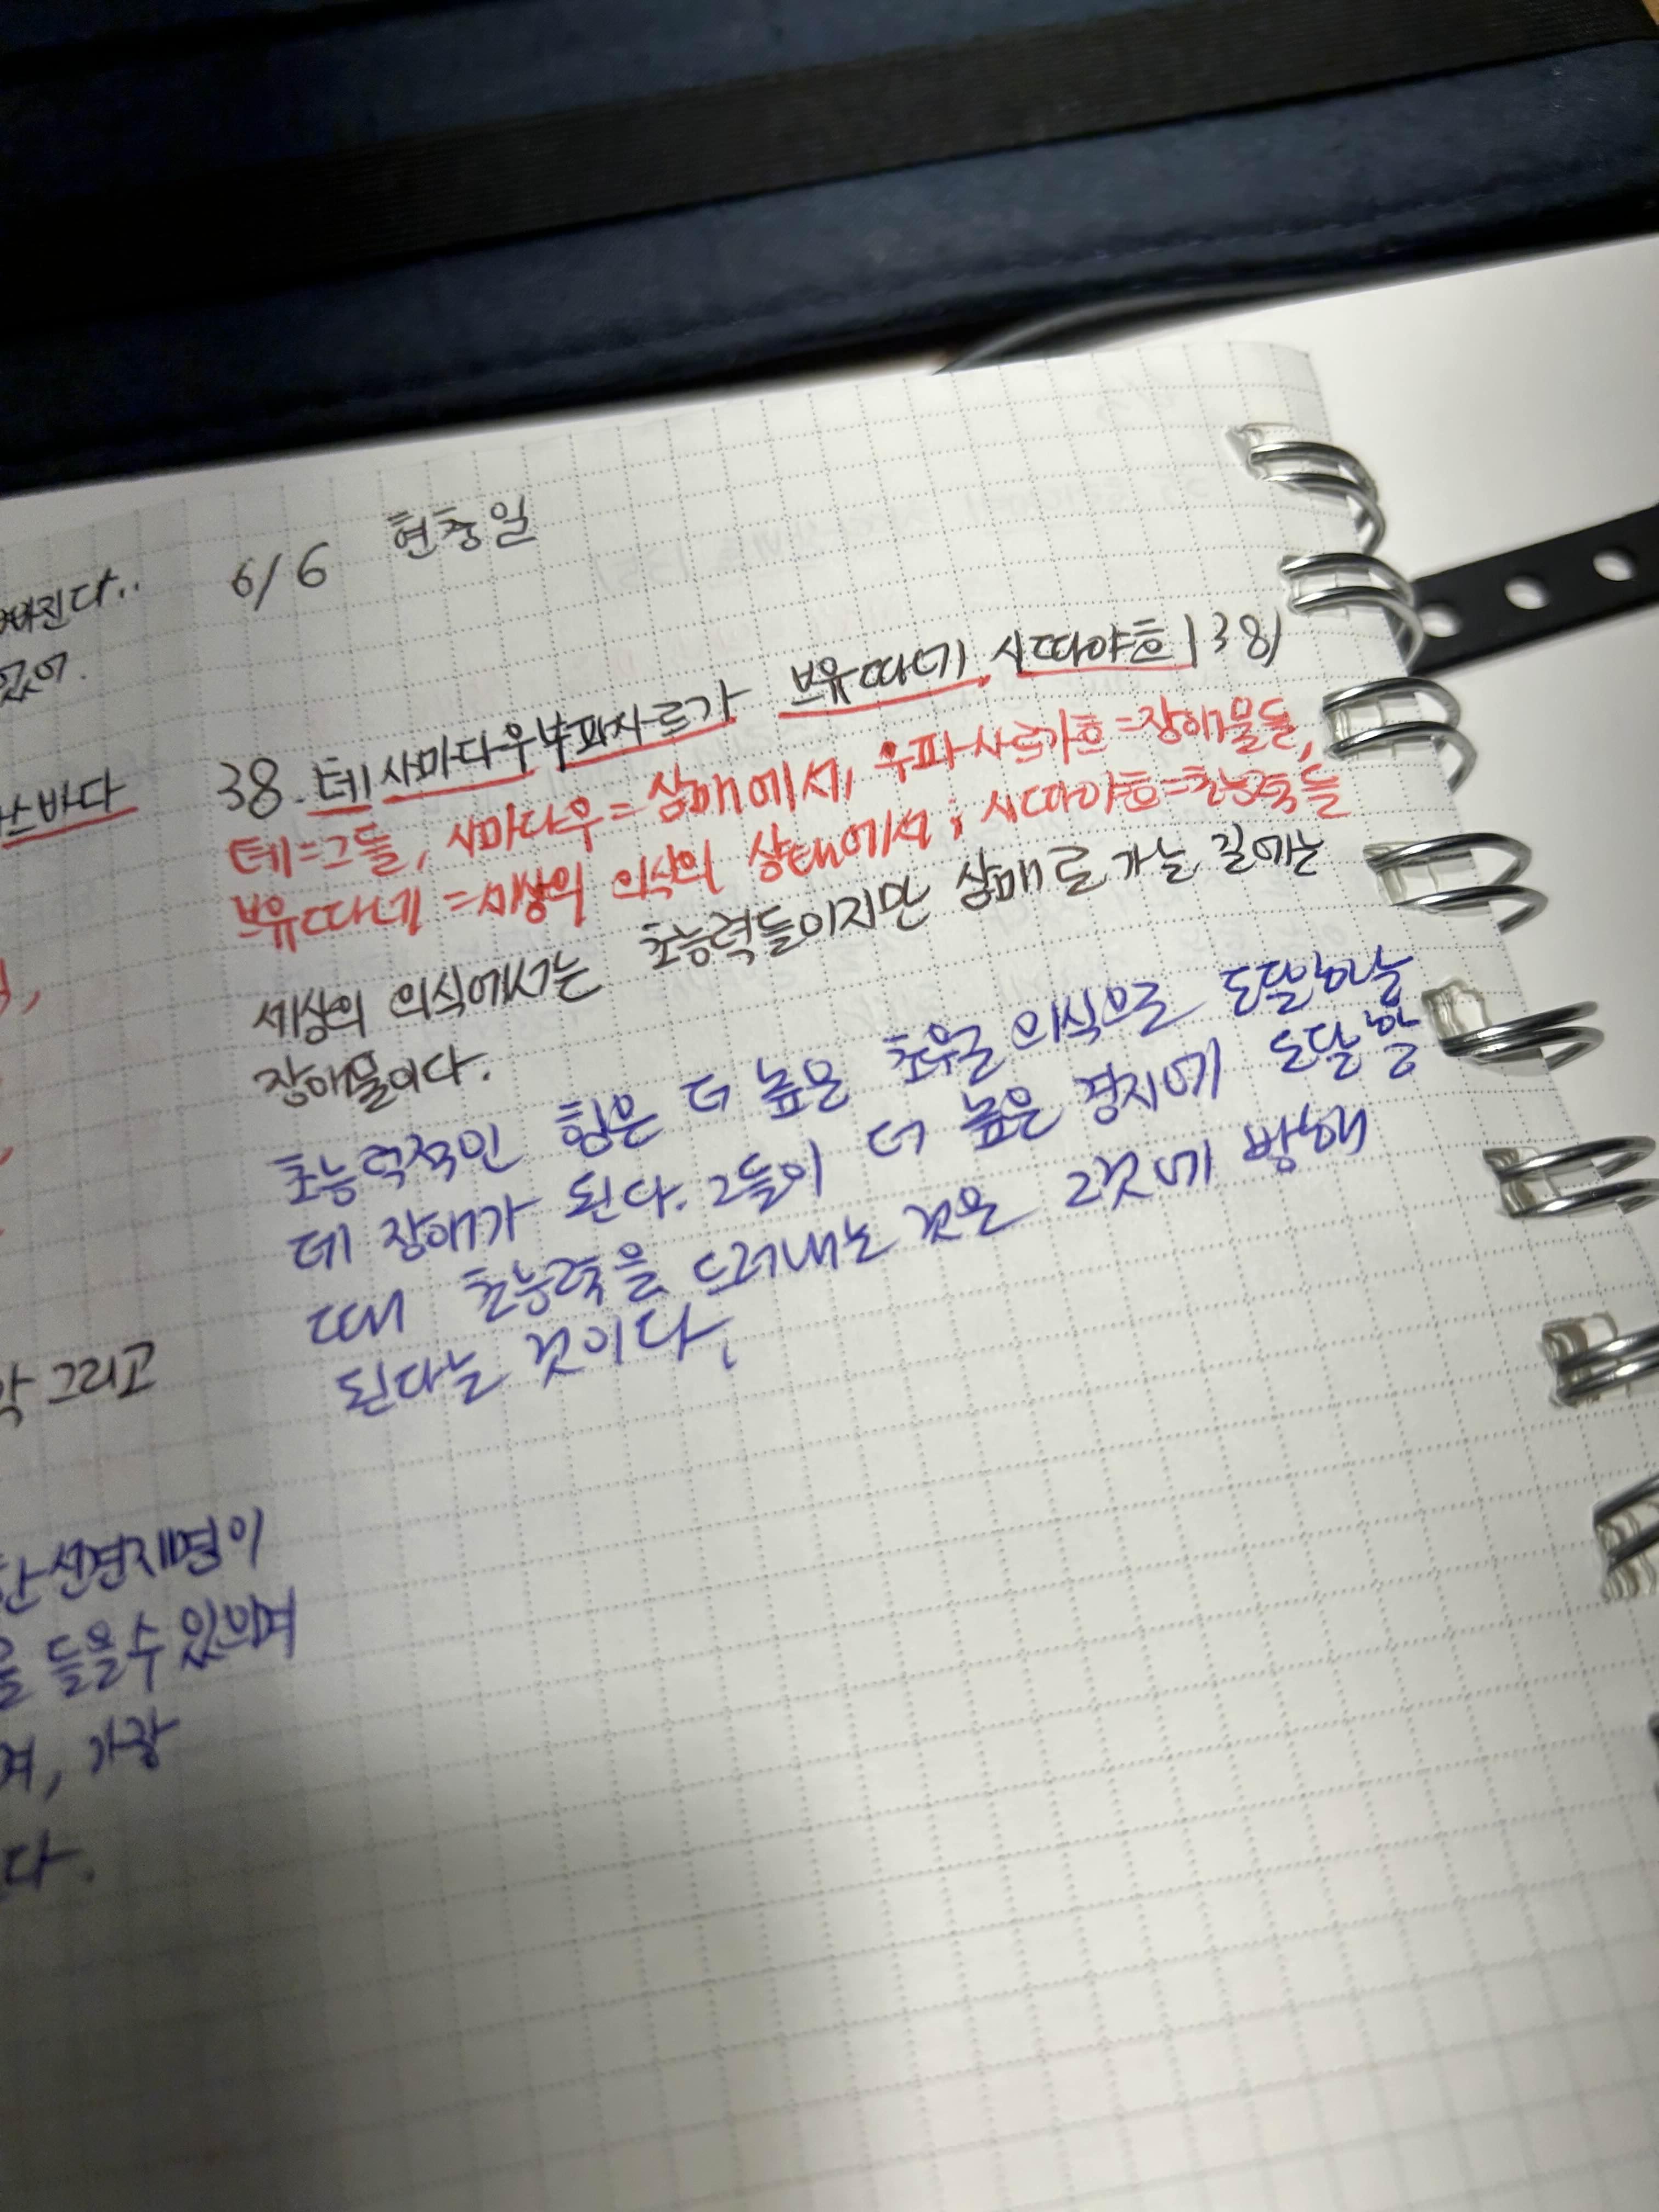 6/6 현충일
38. 테 사마다우부파자르가 브유따네 시따야흐 |38|
테=그들, 사마다우=삼매에서, 우파사르가흐=장애물들,
브유따네=세상의 의식의 상태에서; 시따야흐=초능력들
세상의 의식에서는 초능력들이지만 삼매로 가는 길에는
장애물이다.
초능력적인 힘은 더 높은 초월 의식으로 도달하는
데 장애가 된다. 그들이 더 높은 경지에 도달할
때 초능력을 드러내는 것은 그것에 방해
된다는 것이다.
빠진다..
있어.
스바다
그리고
한 선견지명이
을 들을 수 있으며
며, 가장
다.